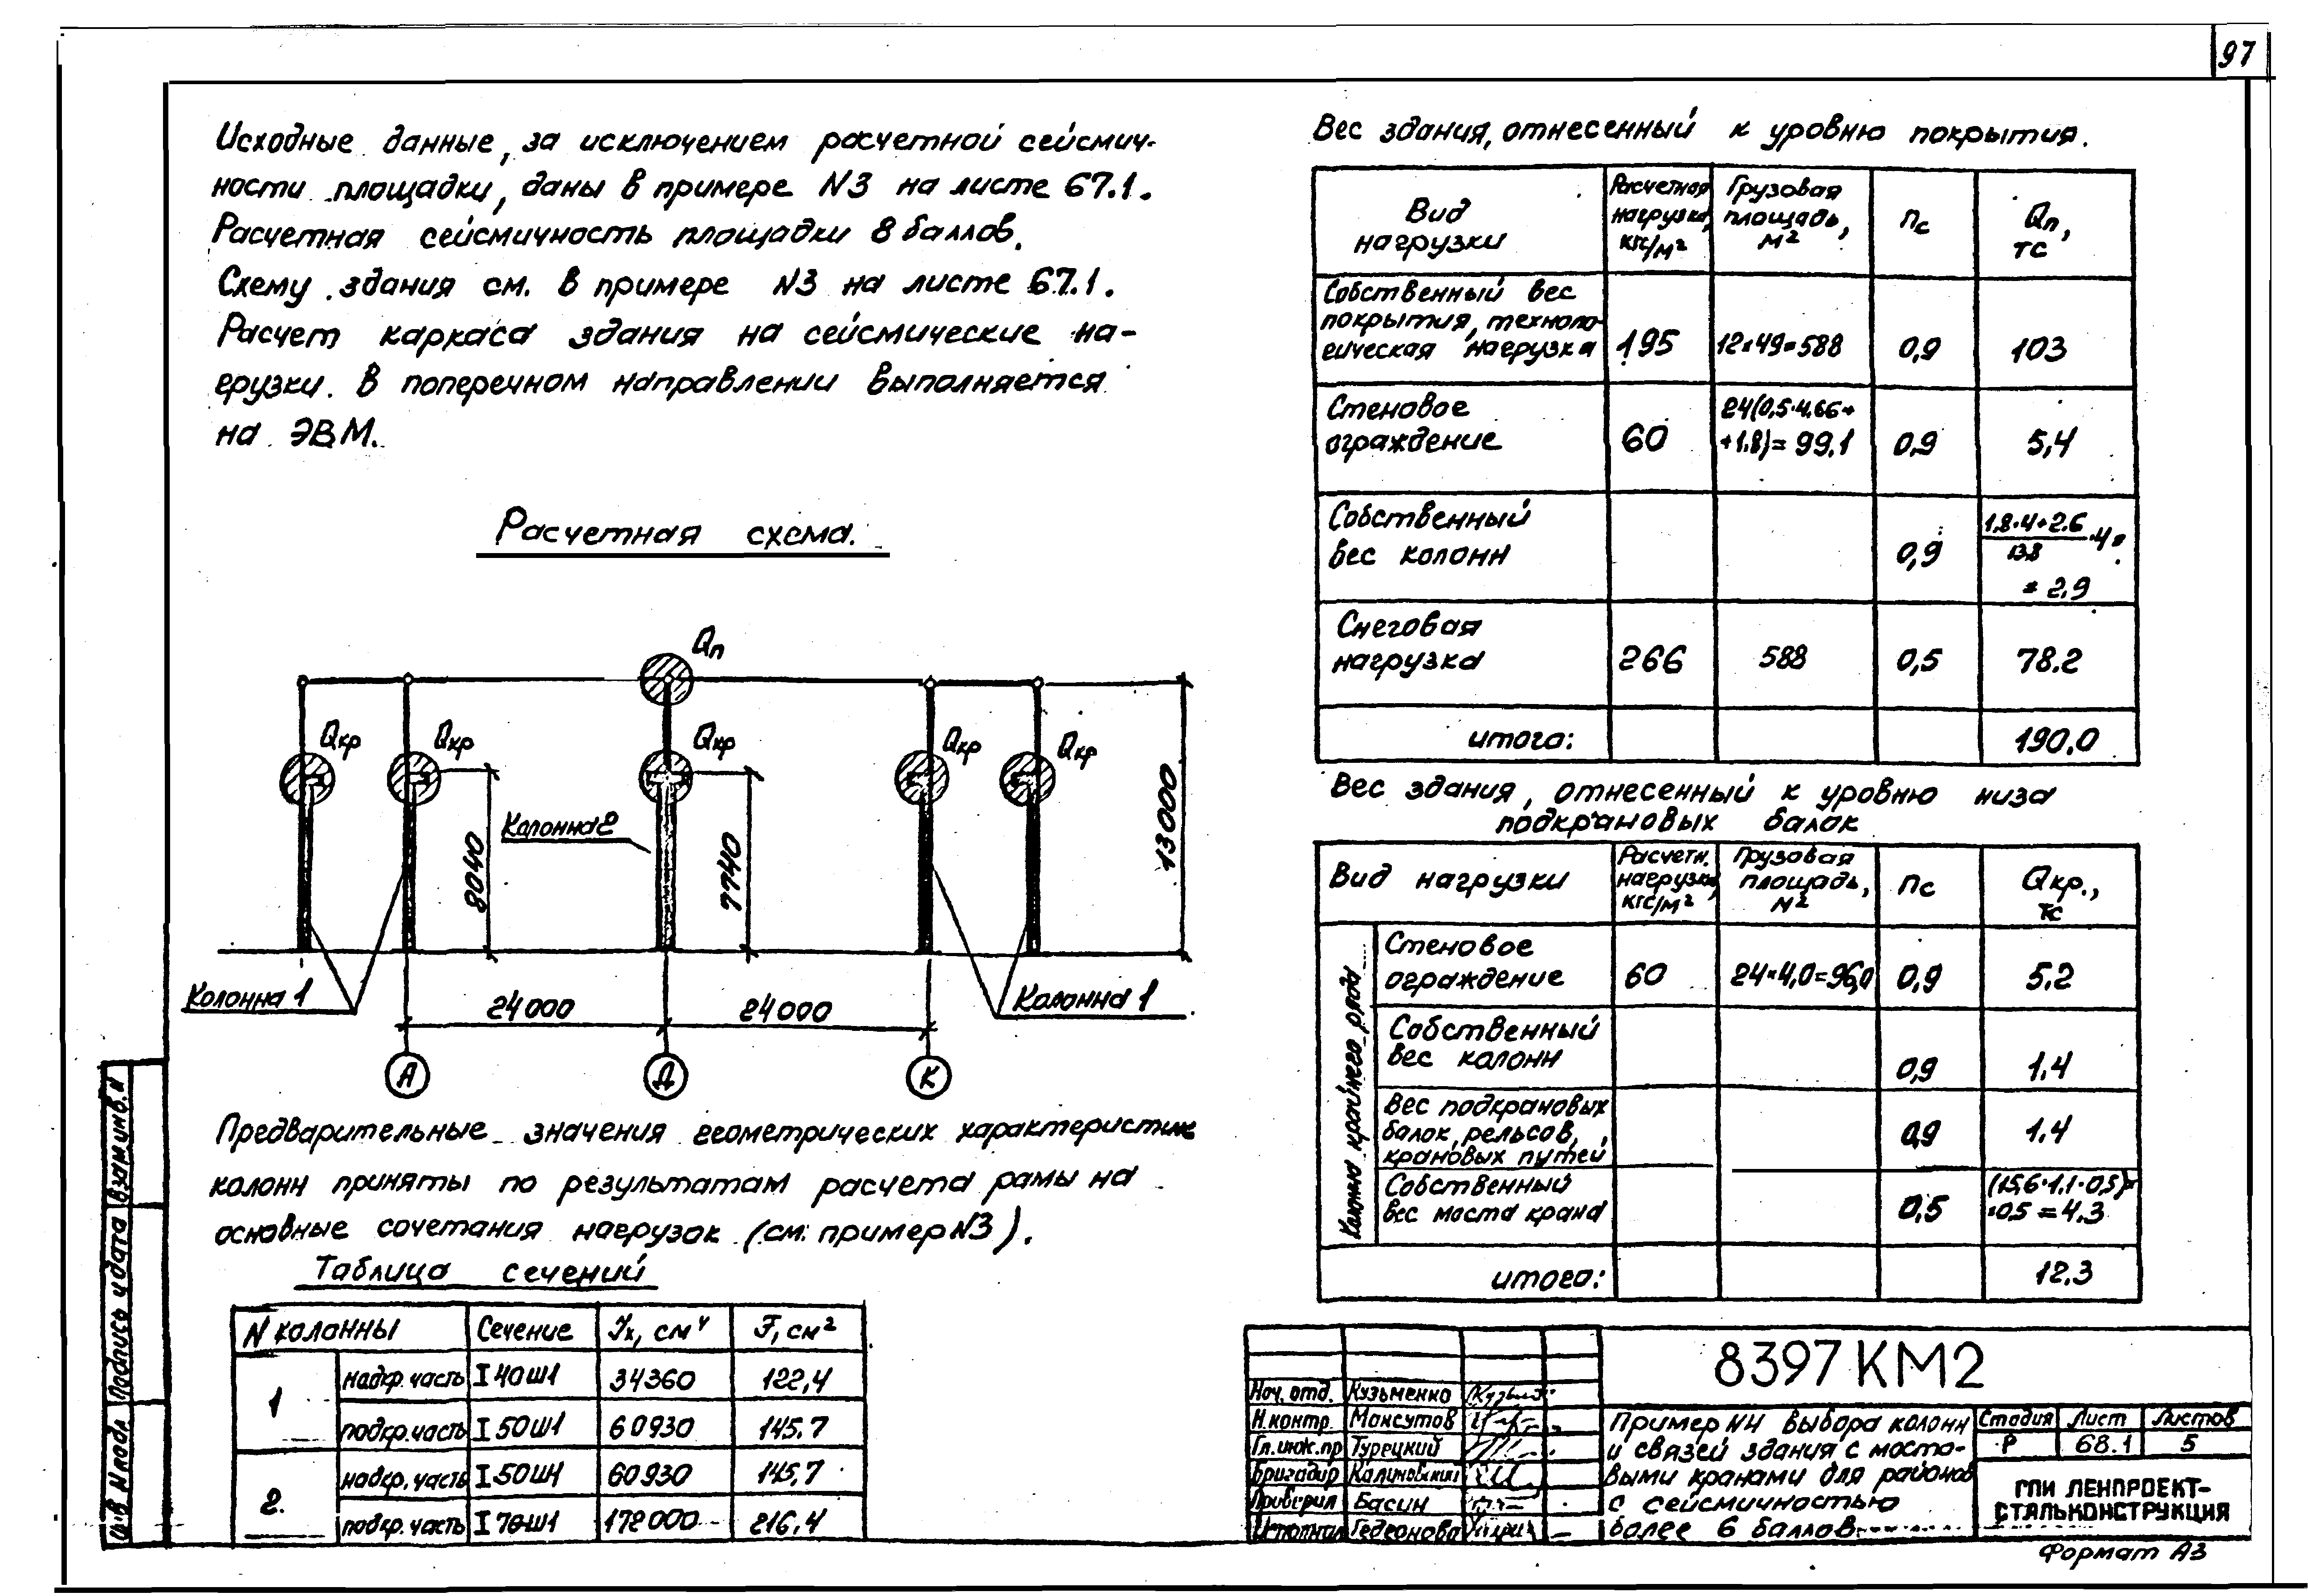 97
Исходные данные, за исключением расчетной сейсмич-
ности площадки, даны в примере N3 на листе 67.1.
Расчетная сейсмичность площадки 8 баллов.
Схему здания см. в примере N3 на листе 67.1.
Расчет каркаса здания на сейсмические на-
грузки в поперечном направлении выполняется
на ЭВМ.
Расчетная схема.
Qп
Qкр Qкр Qкр Qкр Qкр
Колонна 2
8040
7740
13000
Колонна 1
24000
24000
Колонна 1
А Д К
Предварительные значения геометрических характеристик
колонн приняты по результатам расчета рамы на
основные сочетания нагрузок (см. пример N3).
Таблица сечений
N колонны Сечение Jx, см⁴ F, см²
1 надкр. часть I 40Ш1 34360 122,4
подкр. часть I 50Ш1 60930 145.7
2. надкр. часть I 50Ш1 60930 145,7
подкр. часть I 70Ш1 172000 216,4
Вес здания, отнесенный к уровню покрытия.
Вид нагрузки Расчетная нагрузка, кгс/м² Грузовая площадь, м² nс Qп, тс
Собственный вес
покрытия, техноло-
гическая нагрузка 195 12×49=588 0,9 103
Стеновое 24(0,5·4,66+
ограждение 60 +1.8)=99.1 0,9 5,4
Собственный 1,8·4+2.6
вес колонн 0,9 13.8 ·4=
=2,9
Снеговая
нагрузка 266 588 0,5 78.2
итого: 190.0
Вес здания, отнесенный к уровню низа
подкрановых балок
Вид нагрузки Расчетн. нагрузка, кгс/м² Грузовая площадь, м² nс Qкр., тс
Колонна крайнего ряда
Стеновое
ограждение 60 24×4,0=96,0 0,9 5.2
Собственный
вес колонн 0,9 1.4
Вес подкрановых
балок, рельсов,
крановых путей 0,9 1.4
Собственный (15,6·1,1·0,5)×
вес моста крана 0,5 ×0,5=4.3
итого: 12.3
8397 КМ2
Нач. отд. Кузьменко
Н. контр. Мансутов
Гл. инж. пр Турецкий
Бригадир Калиновский
Проверил Басин
Исполнил Гедеонова
Пример N4 выбора колонн
и связей здания с мосто-
выми кранами для районов
с сейсмичностью
более 6 баллов
Стадия Лист Листов
Р 68.1 5
ГПИ ЛЕНПРОЕКТ-
СТАЛЬКОНСТРУКЦИЯ
Формат А3
Инв. N подл. Подпись и дата Взам. инв. N